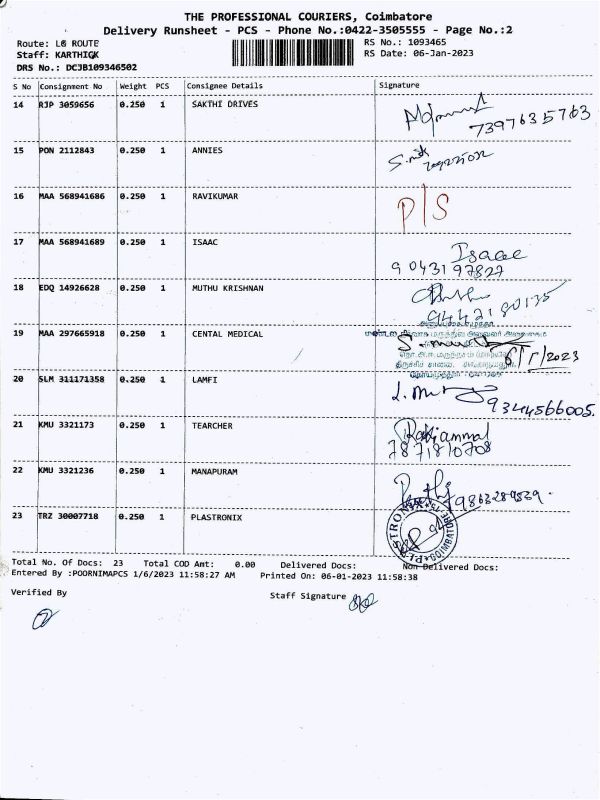 THE PROFESSIONAL COURIERS, Coimbatore
Delivery Runsheet - PCS - Phone No.:0422-3505555 - Page No.:2
Route: L6 ROUTE
RS No.: 1093465
Staff: KARTHICK
RS Date: 06-Jan-2023
DRS No.: DCJB109346502
S No Consignment No Weight PCS Consignee Details Signature
14 RJP 3059656 0.250 1 SAKTHI DRIVES
7397635763
15 PON 2112843 0.250 1 ANNIES
16 MAA 568941686 0.250 1 RAVIKUMAR P/S
17 MAA 568941689 0.250 1 ISAAC Isaac
9043197827
18 EDQ 14926628 0.250 1 MUTHU KRISHNAN
9442180135
19 MAA 297665918 0.250 1 CENTAL MEDICAL
6/1/2023
20 SLM 311171358 0.250 1 LAMFI
9344566005.
21 KMU 3321173 0.250 1 TEARCHER Rakjammal
7871810708
22 KMU 3321236 0.250 1 MANAPURAM
9863289839.
23 TRZ 30007718 0.250 1 PLASTRONIX
PLASTRONIX COIMBATORE-15
Total No. Of Docs: 23 Total COD Amt: 0.00 Delivered Docs: Non Delivered Docs:
Entered By :POORNIMAPCS 1/6/2023 11:58:27 AM Printed On: 06-01-2023 11:58:38
Verified By
Staff Signature